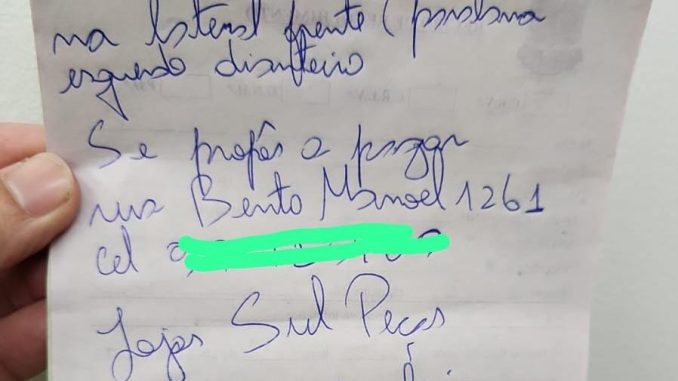 na lateral frente (paralama
esquerdo dianteiro
Se propôs a pagar
rua Bento Manoel 1261
cel
Lojas Sul Peças